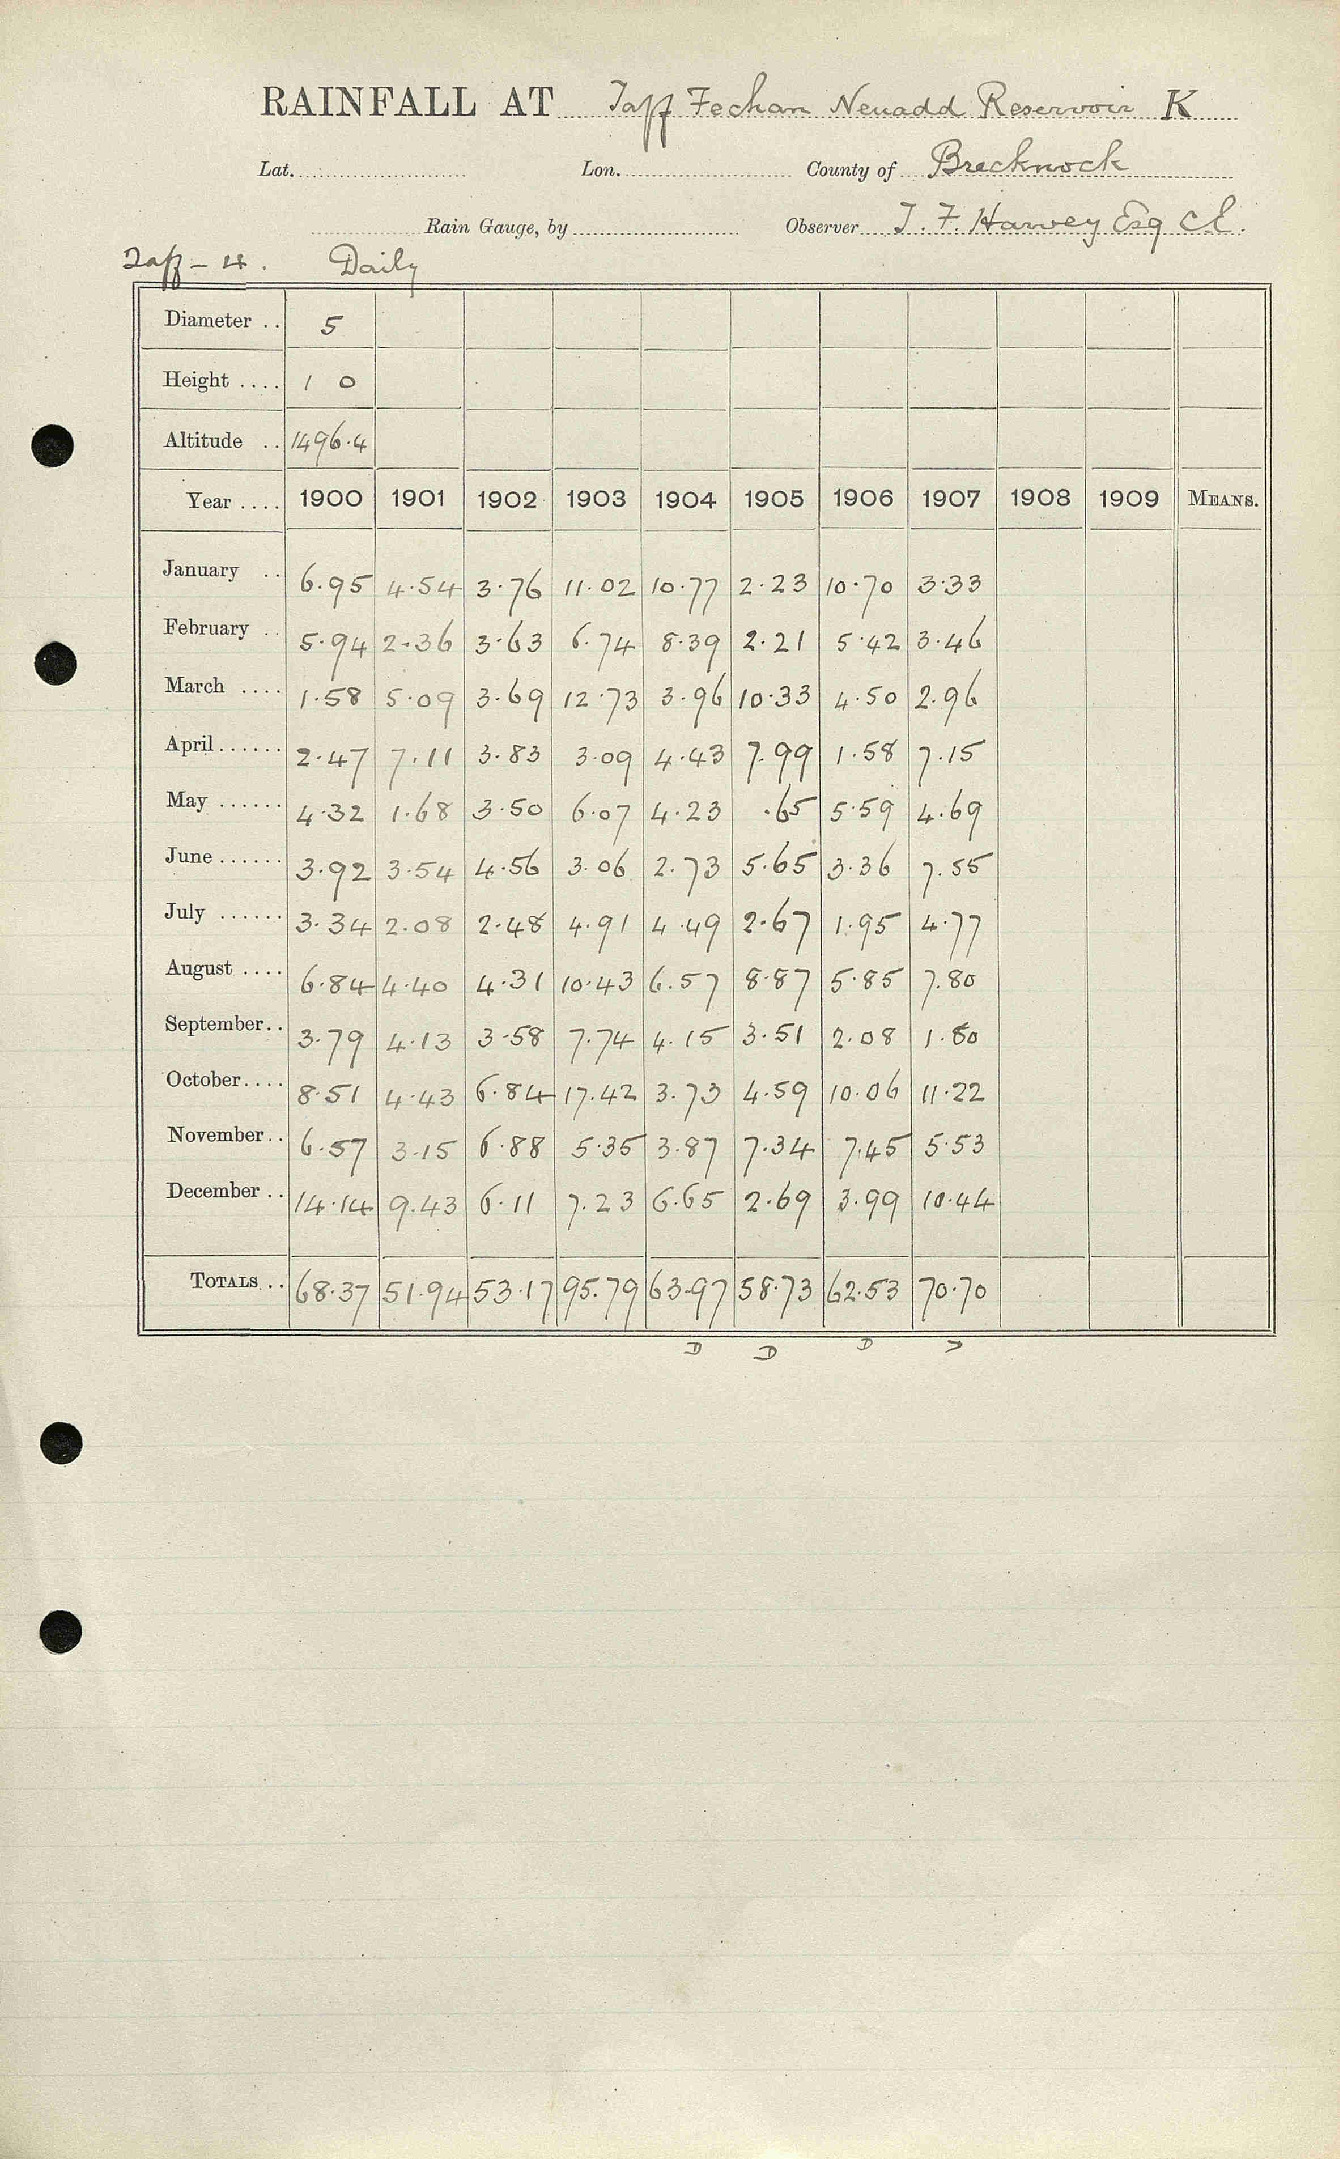 RAINFALL AT Taff Fechan Neuadd Reservoir K
Lat. Lon. County of Brecknock
Rain Gauge, by Observer T. F. Harvey Esq CE.
Taff - 4. Daily
Diameter .. 5
Height .... 1 0
Altitude .. 1496.4
Year .... 1900 1901 1902 1903 1904 1905 1906 1907 1908 1909 MEANS.
January .. 6.95 4.54 3.76 11.02 10.77 2.23 10.70 3.33
February .. 5.94 2.36 3.63 6.74 8.39 2.21 5.42 3.46
March .... 1.58 5.09 3.69 12.73 3.96 10.33 4.50 2.96
April ...... 2.47 7.11 3.83 3.09 4.43 7.99 1.58 7.15
May ...... 4.32 1.68 3.50 6.07 4.23 .65 5.59 4.69
June ...... 3.92 3.54 4.56 3.06 2.73 5.65 3.36 7.55
July ...... 3.34 2.08 2.48 4.91 4.49 2.67 1.95 4.77
August .... 6.84 4.40 4.31 10.43 6.57 8.87 5.85 7.80
September.. 3.79 4.13 3.58 7.74 4.15 3.51 2.08 1.80
October.... 8.51 4.43 6.84 17.42 3.73 4.59 10.06 11.22
November.. 6.57 3.15 6.88 5.35 3.87 7.34 7.45 5.53
December .. 14.14 9.43 6.11 7.23 6.65 2.69 3.99 10.44
TOTALS .. 68.37 51.94 53.17 95.79 63.97 58.73 62.53 70.70
D D D